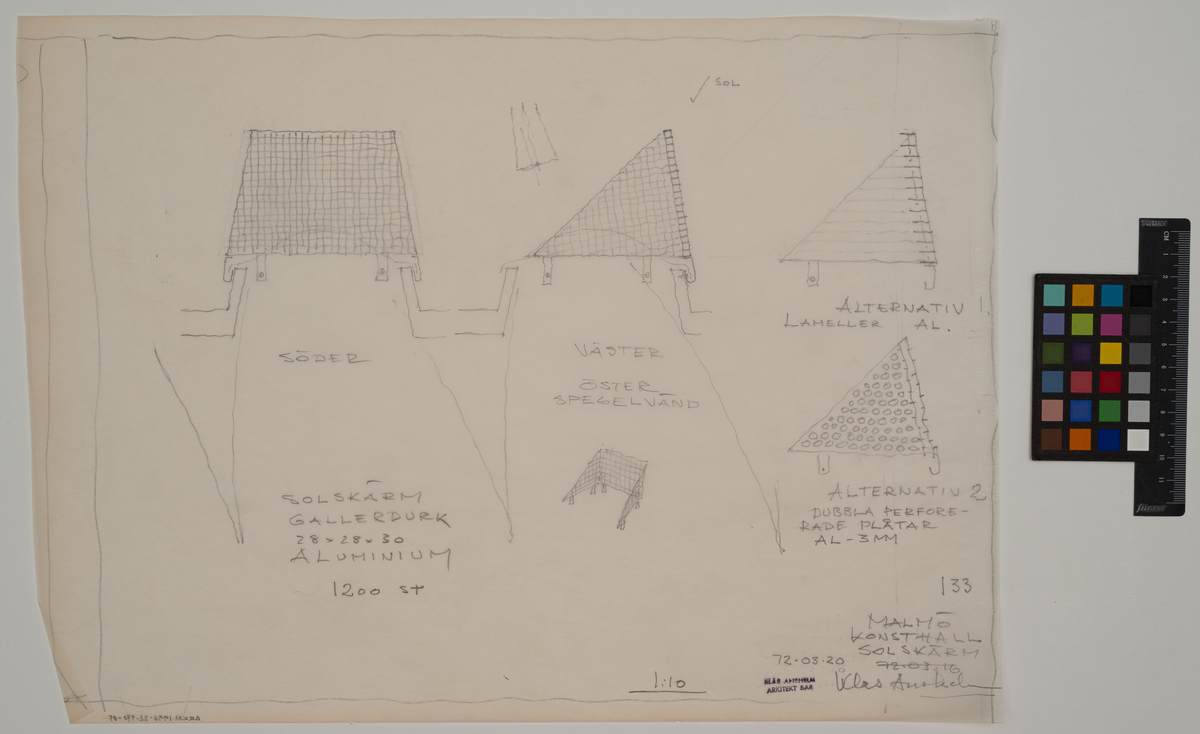 SOL
SÖDER
VÄSTER
ÖSTER
SPEGELVÄND
ALTERNATIV 1.
LAMELLER AL.
ALTERNATIV 2
DUBBLA PERFORE-
RADE PLÅTAR
AL-3MM
SOLSKÄRM
GALLERDURK
28×28×30
ALUMINIUM
1200 ST
133
MALMÖ
KONSTHALL
SOLSKÄRM
72.03.20
72.03.16
1:10
KLAS ANSHELM
ARKITEKT SAR
Klas Anshelm
CM
1
2
3
4
5
6
7
8
9
10
11